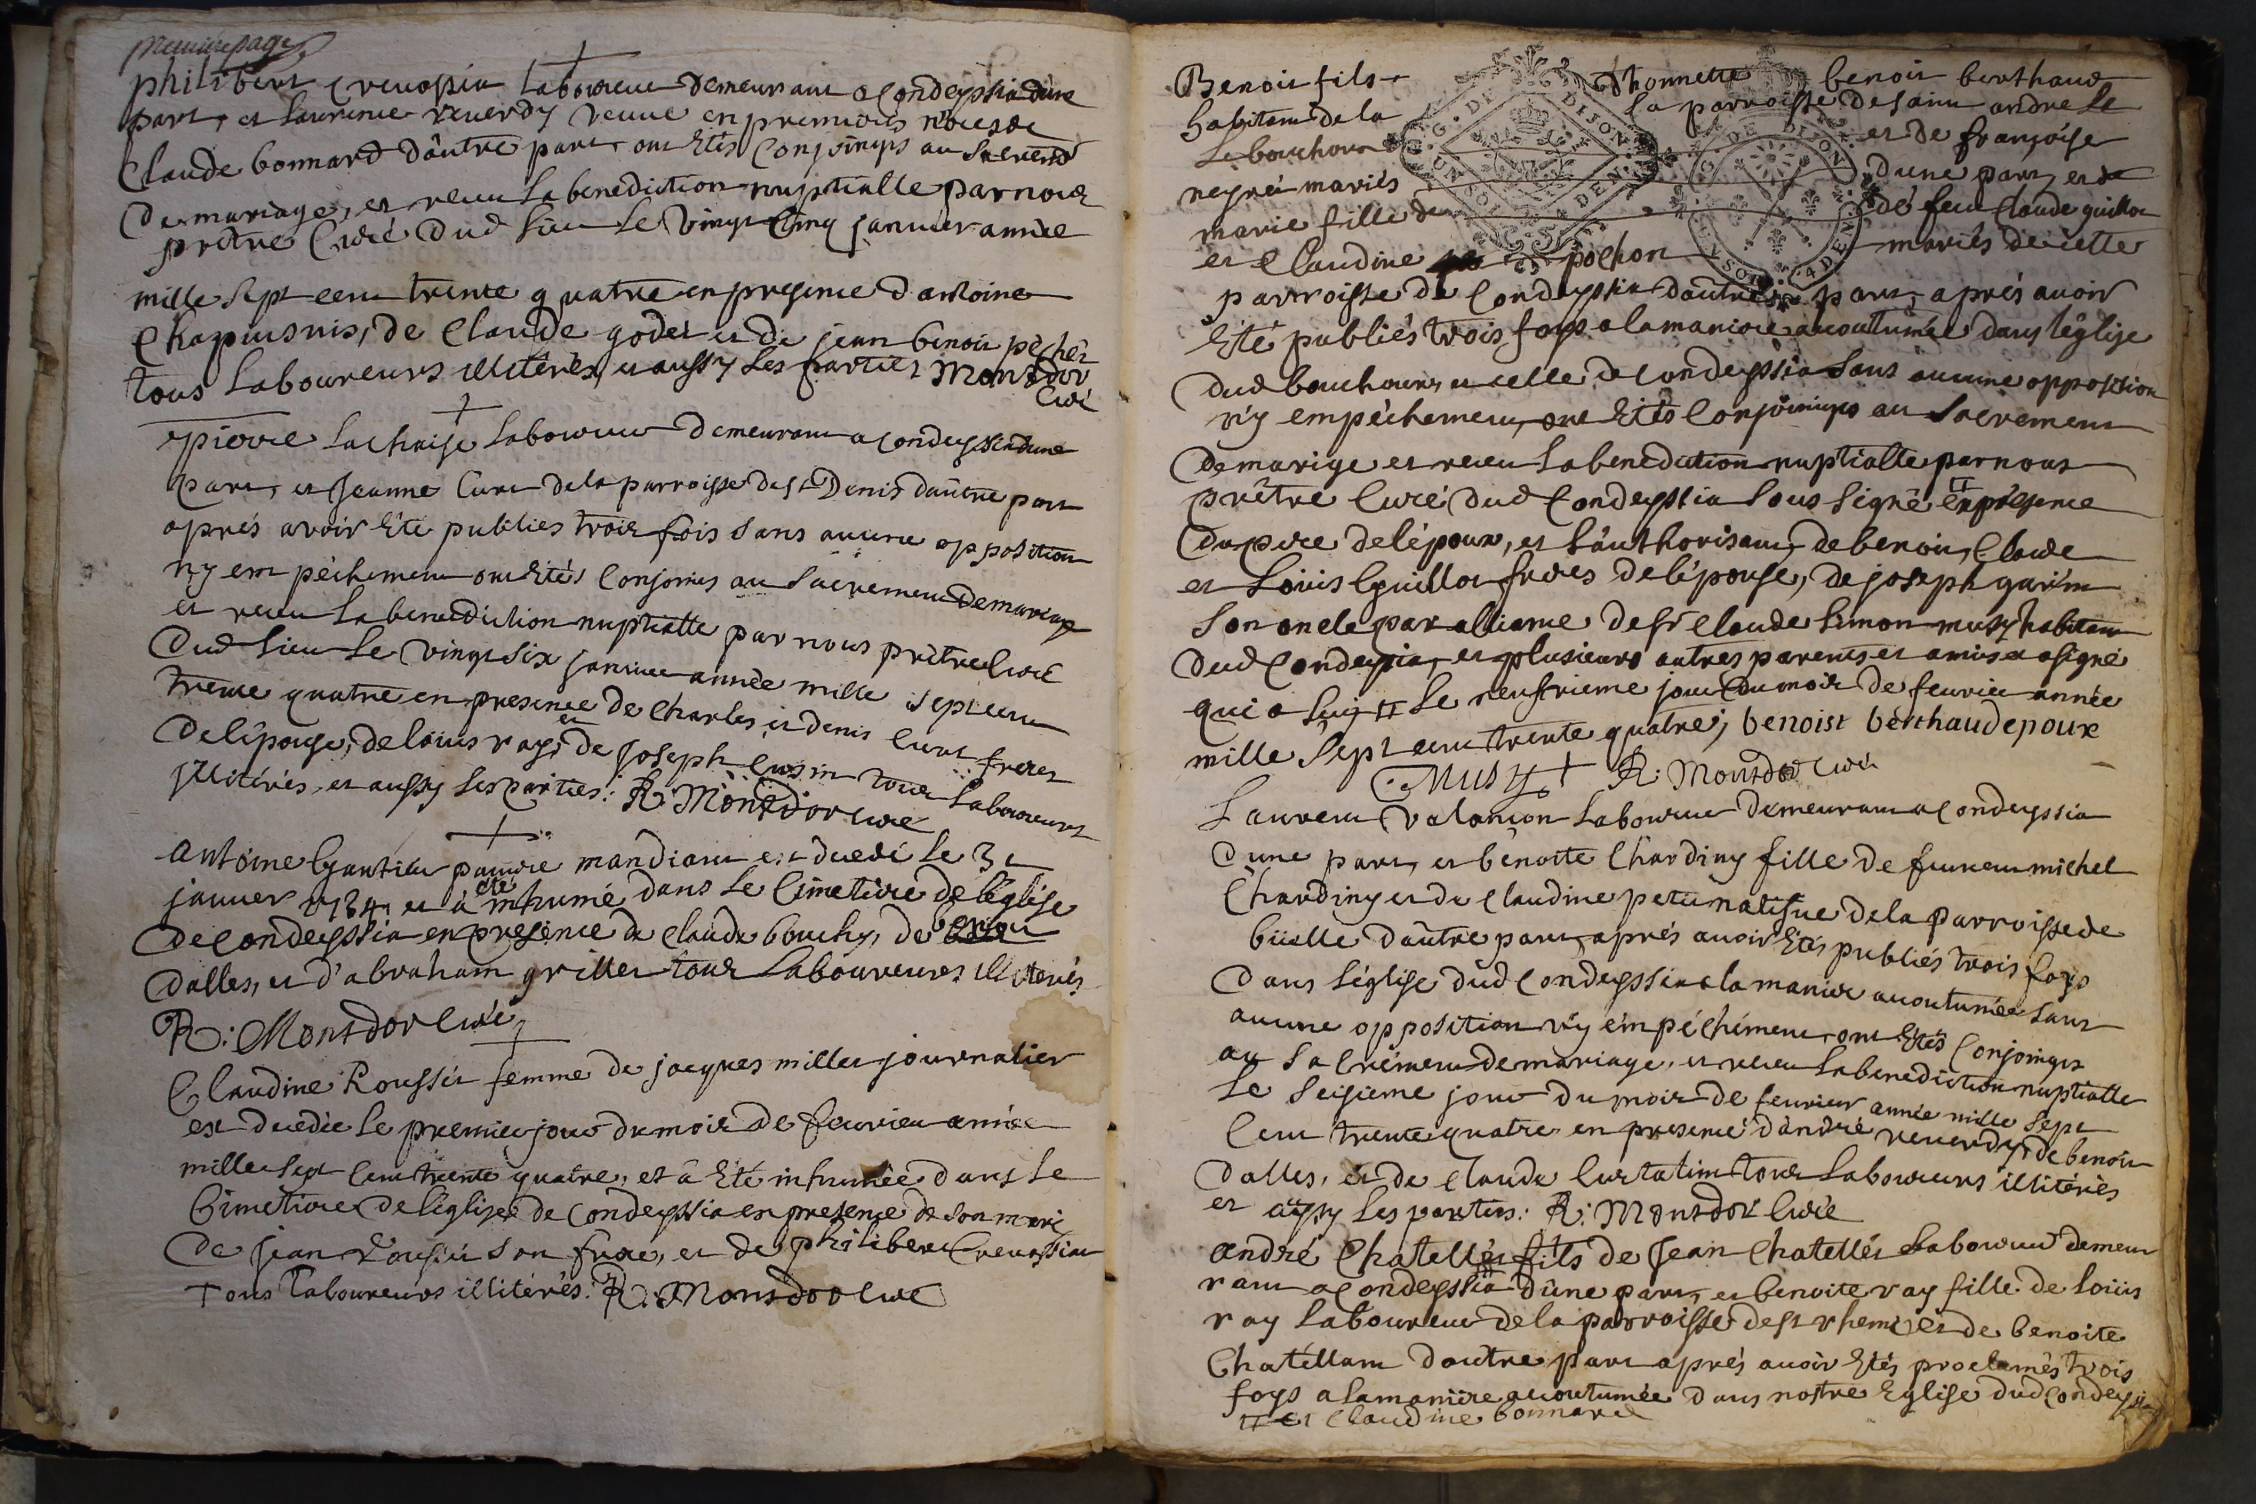 premiere page
philibert Crevossia Laboureur demeurant a Condeyssia d'une
part, et Laurence reverdy veuve en premieres nôces de
Claude bonnard d'autre part ont Etés Conjoingts au Sacrem't
De mariage, et receu La benediction nuptialle par nous
prêtre Curé dud lieu Le Vingt Cinq janvier année
mille Sept cent trente quatre en presence d'antoine
Chapuis de Claude godet et de jean benoit
tous Laboureurs illitérés et aussy Les parties Montdor
Curé
pierre Lachaise Laboureur Demeurant a Condeyssia d'une
part, et Jeanne Curt de la parroisse de st Denis d'autre part
aprés avoir Eté publies trois fois Sans aucune opposition
ny empêchement ont Etés Conjoints au Sacrement De mariage
et receu La benediction nuptialle par nous prêtre Curé
Dud Lieu Le vingt Six janvier année mille Sept cent
trente quatre en presence de Charles, et denis Curt freres
De l'épouse, de Loüis ray, et de Joseph tous Laboureurs
illitérés, et aussy Les parties: R: Montdor Curé
antoine Gautier pauvre mandiant est decedé Le 31
janvier 1734 et a été inhumé dans Le Cimetiere de l'église
De Condeyssia en presence de Claude bouchy, de
Dalles, et d'abraham griller tous Laboureurs illiterés
R: Montdor Curé
Claudine Rousset femme de jacques millet journalier
est decedée Le premier jour du mois de fevrier année
mille Sept Cent trente quatre, et à Eté inhumée dans Le
Cimetiere de l'église de Condeyssia en presence de son mari
De jean Rousset son frere, et de philibert Crevossiat
Tous Laboureurs illitérés: R: Montdor Curé
Benoit fils d'honnette benoit berthaud
habitant de la La parroisse de saint andré Le
Le bouchoux et de françoise
neyret mariés d'une part, et de
marie fille de dé feu Claude guillot
et Claudine pochon mariés de cette
parroisse de Condeyssia d'autre part, aprés avoir
Eté publiés trois foys a la maniere accoutumée dans l'église
Dud bouchoux, et celle de Condeyssia Sans aucune opposition
n'y empêchement, ont Etés Conjoingts au Sacrement
De marige et receu La benediction nuptialle par nous
prêtre Curé dud Condeyssia Sous Signé en présence
Du pere de l'époux, et L'authorisant, de benoit, Claude
et Loüis Guillot freres de l'épouse, de joseph garin
Son oncle par alliance de sr Claude Simon musy habitant
Dud Condeyssia, et plusieurs autres parents et amis a signé
qui a Sçu Le neufvieme jour Du mois De fevrier année
mille Sept cent trente quatre; benoist berthaud epoux
Musy R: Montdor Curé
Laurent Valançon Laboureur Demeurant a Condeyssia
D'une part, et benoite Chardiny fille de feu michel
Chardiny et de Claudine petit natifue de la Parroisse de
büelle d'autre part, aprés avoir Etés publiés trois foys
Dans l'église dud Condeyssia a la maniere accoutumée Sans
aucune opposition n'y émpéchément, ont Etés Conjoingts
au Sacrément de mariage, et receu La benediction nuptialle
Le Seisieme jour Du mois De fevrier année mille Sept
Cent trente quatre en presence d'andré reverdy, de benoit
Dalles, et de Claude Curtalin tous Laboureurs illitérés
et aussy Les parties: R: Montdor Curé
andré Chatellet fils de Jean Chatellét Laboureur demeu
rant a Condeyssia d'une part, et benoite ray fille de Loüis
ray Laboureur de la parroisse de st rhemi et de benoite
Chatéllam d'autre part aprés avoir Etés proclamés trois
foys a la maniere accoutumée Dans nostre Eglise Dud Condeyssia
et Claudine bonnard